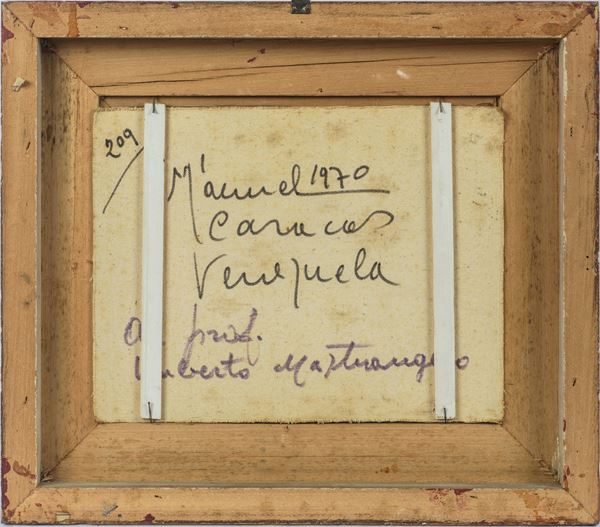 209
Manuel 1970
Caracas
Venezuela
al prof.
Umberto Mastrangelo